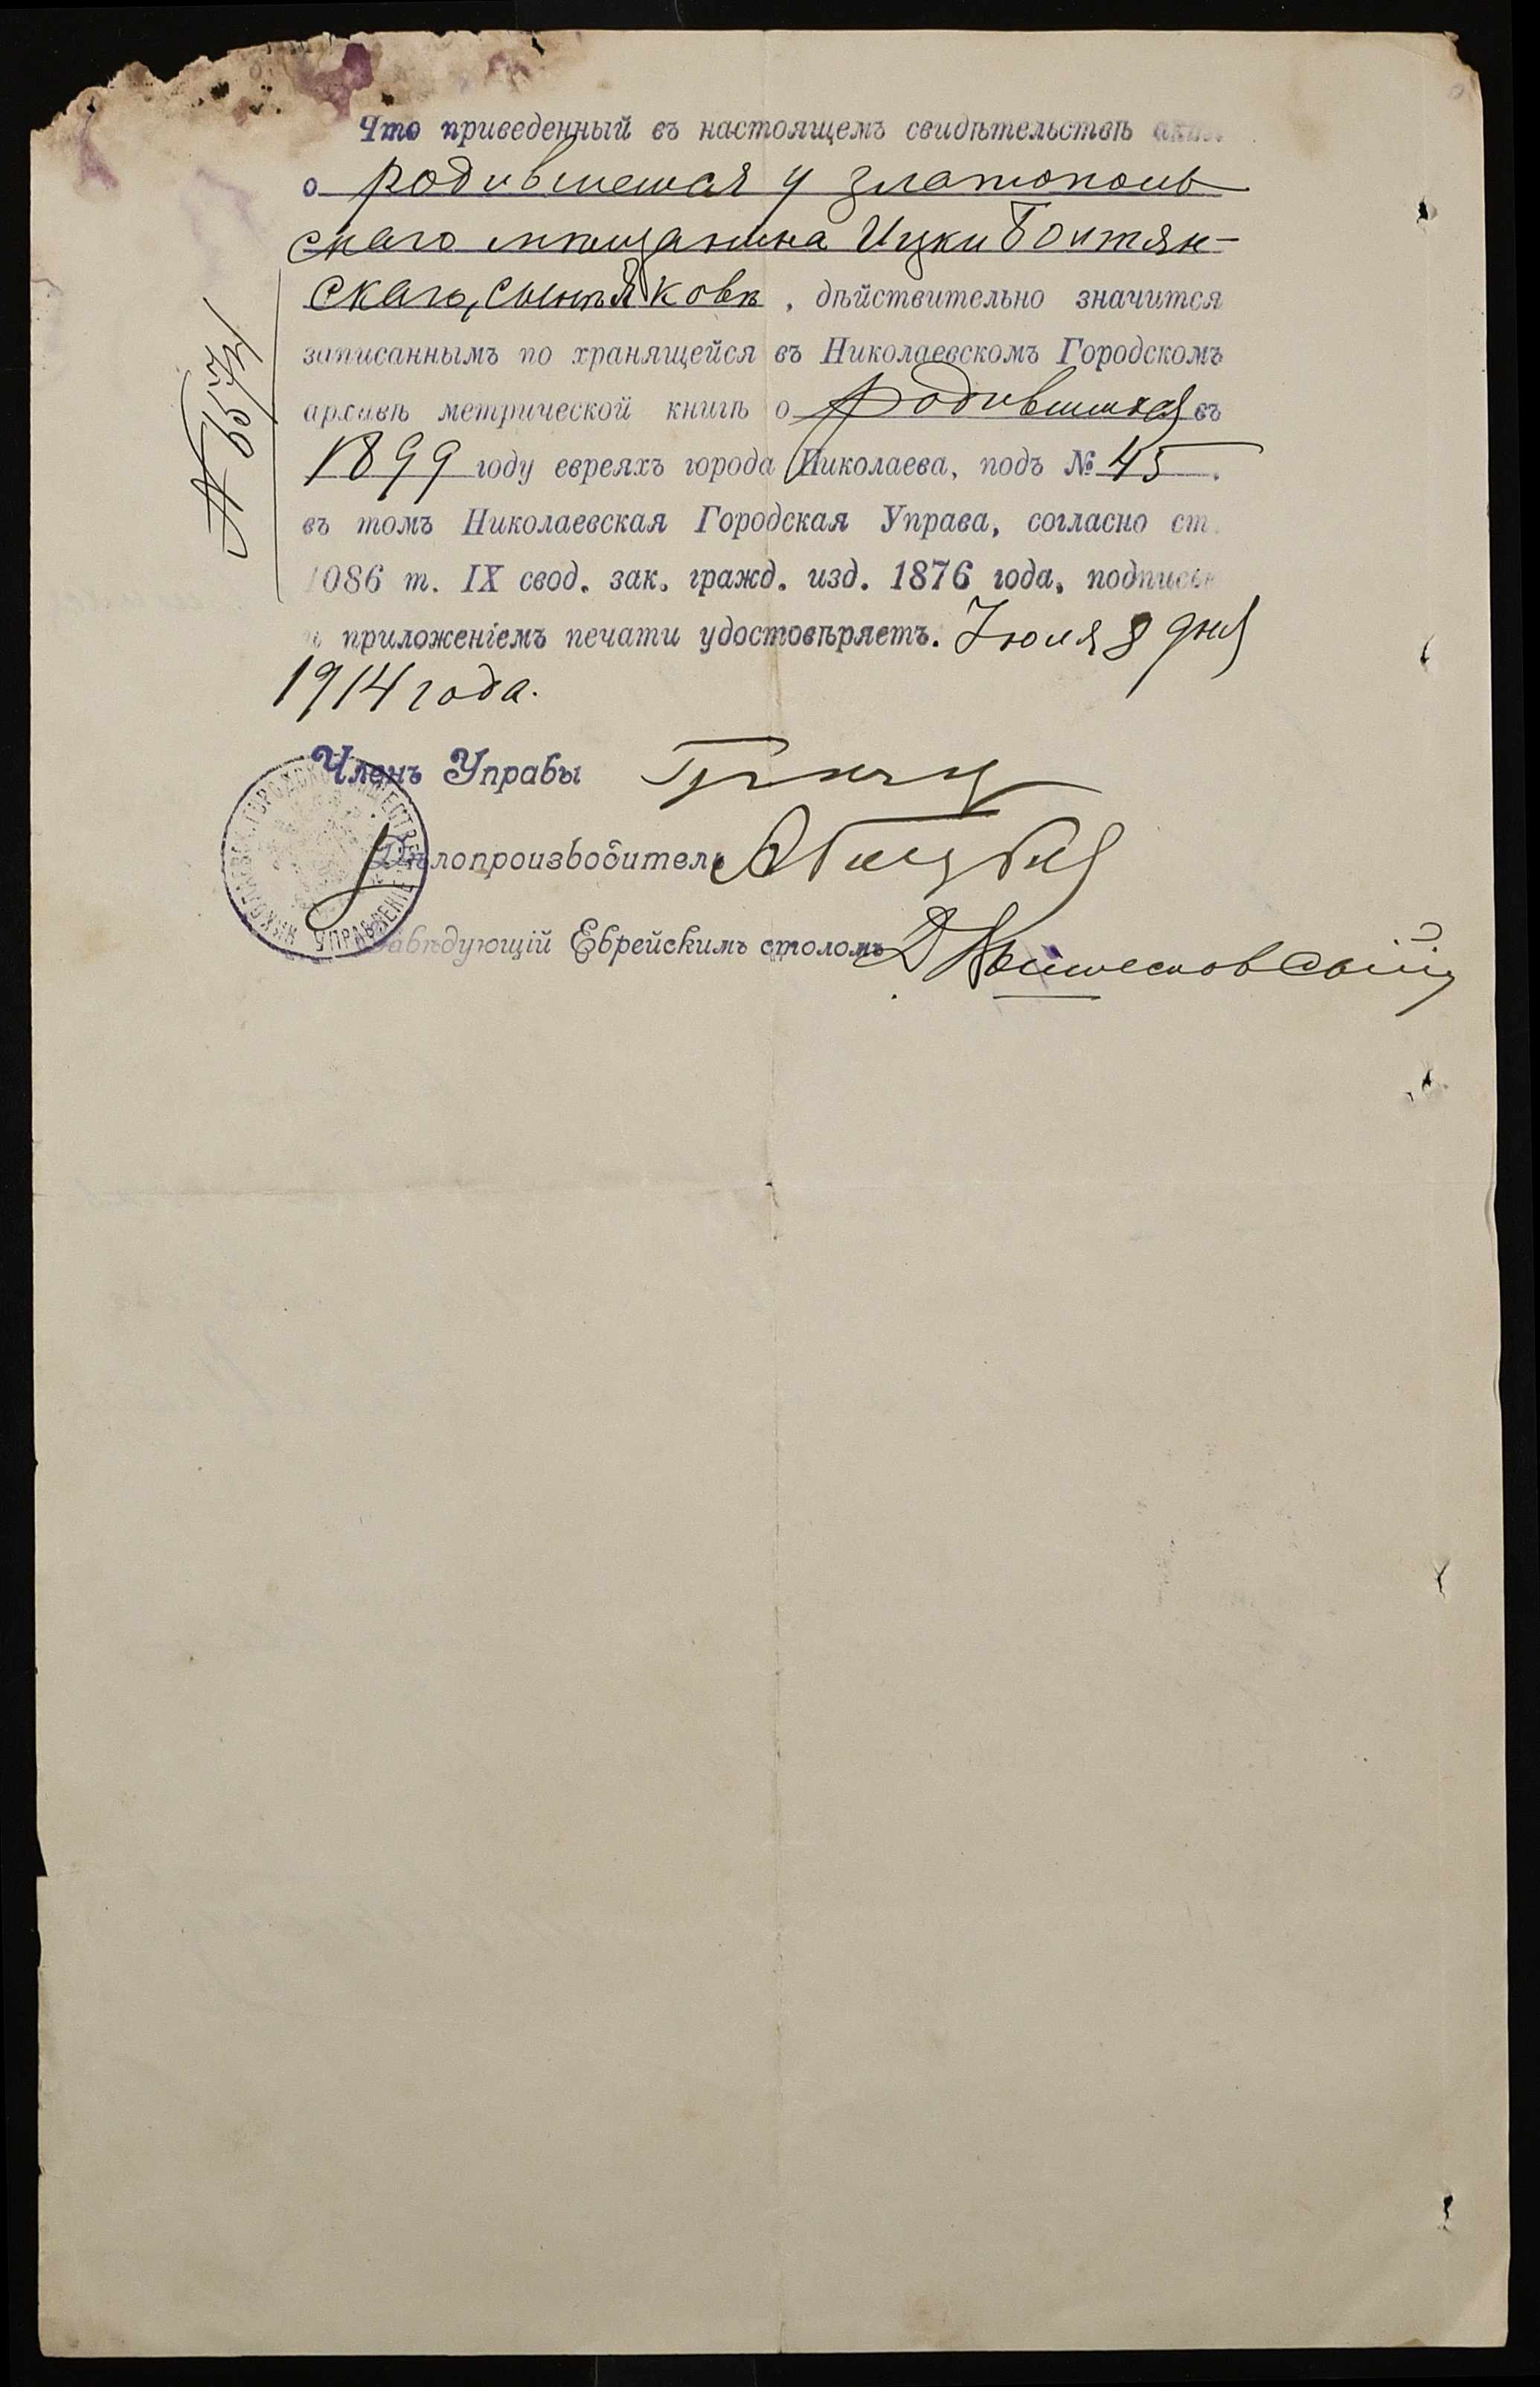 Что приведенный въ настоящемъ свидѣтельствѣ
о родившемся у златополь
скаго мѣщанина Ицки Боитян-
скаго, сынѣ Яковѣ, дѣйствительно значится
записаннымъ по хранящейся въ Николаевскомъ Городскомъ
архивѣ метрической книгѣ о родившихся въ
1899 году евреяхъ города Николаева, подъ № 45.
въ томъ Николаевская Городская Управа, согласно ст.
1086 т. IX свод. зак. гражд. изд. 1876 года, подписью
и приложеніемъ печати удостовѣряетъ. Іюля 8 дня
1914 года.
Членъ Управы
Дѣлопроизводитель
Завѣдующій Еврейскимъ столомъ
НИКОЛАЕВСК. ГОРОДСКОЕ ОБЩЕСТВЕН. УПРАВЛЕНІЕ